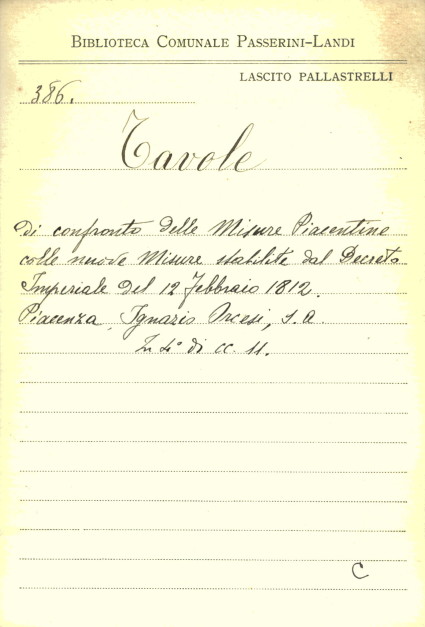 BIBLIOTECA COMUNALE PASSERINI-LANDI
LASCITO PALLASTRELLI
386.
Tavole
di confronto delle Misure Piacentine
colle nuove Misure stabilite dal Decreto
Imperiale del 12 Febbraio 1812.
Piacenza, Ignazio Orcesi, s. a
In 4° di cc. 11.
C